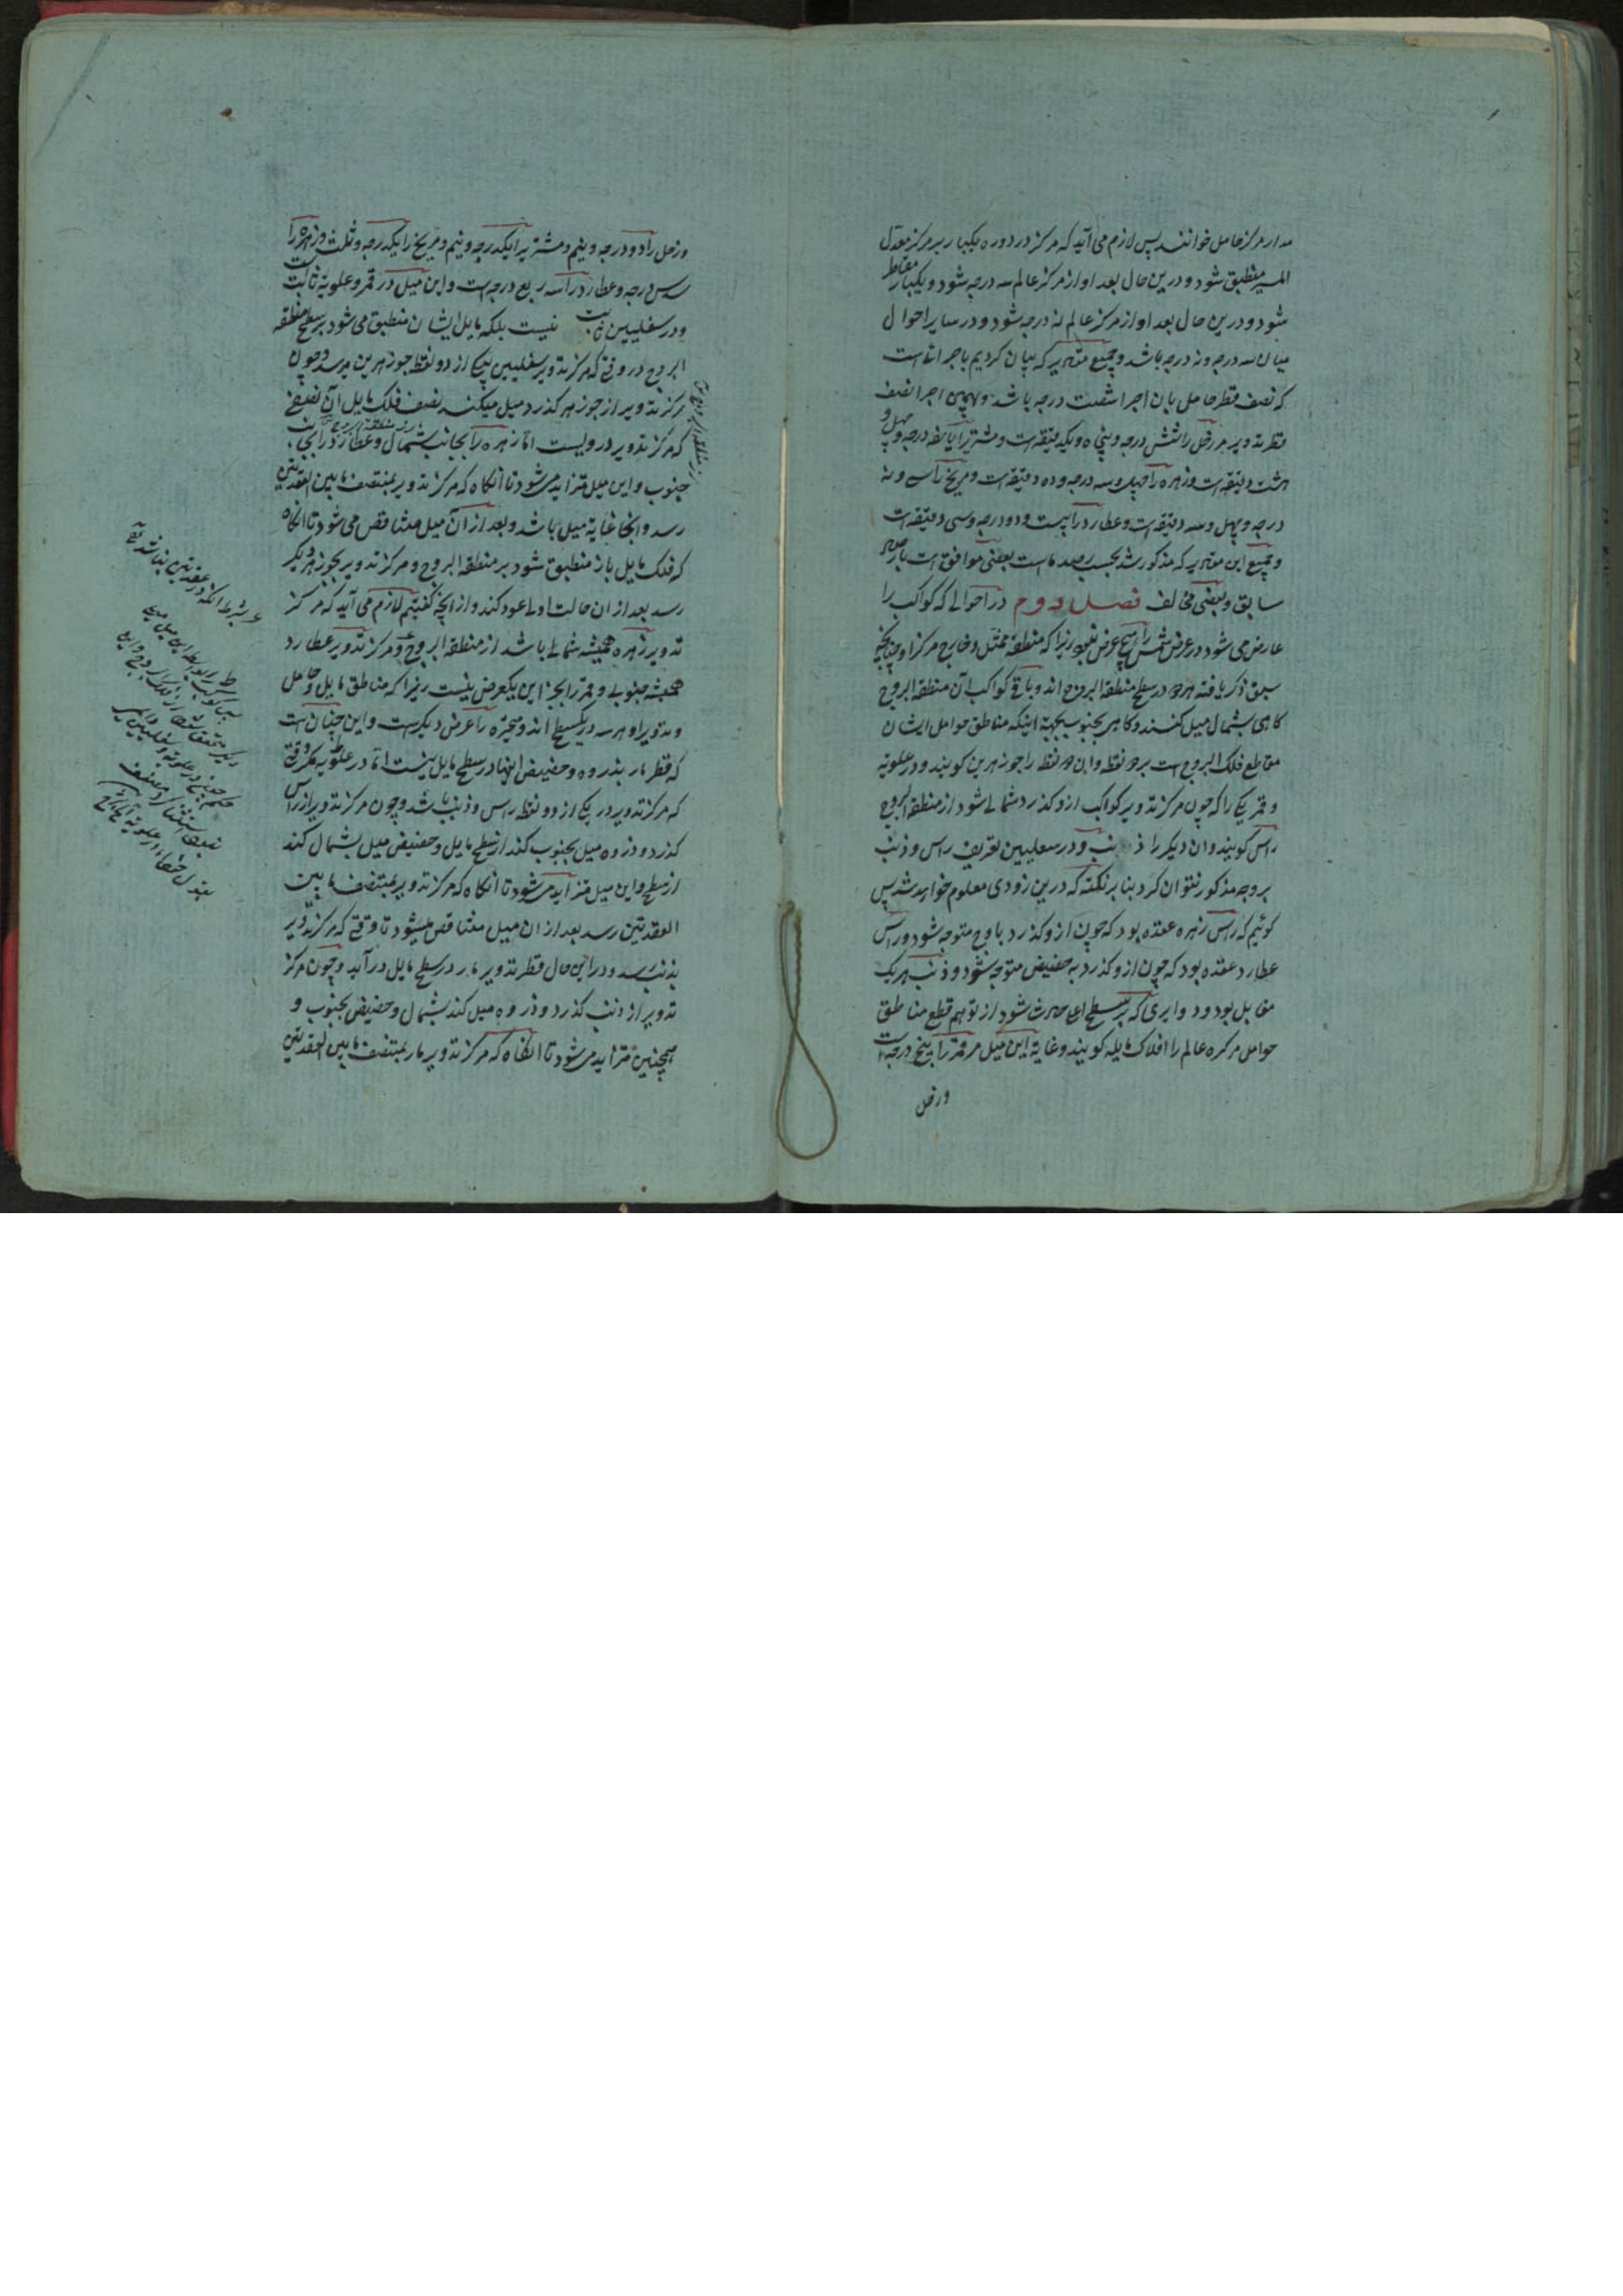 مدار مرکز حامل خوانند پس لازم می آید که مرکز در دوره یکبار بر مرکز معدل
المسیر منطبق شود و درین حال بعد او از مرکز عالم سه درجه شود و یکبار مقاطر
شود و درین حال بعد او از مرکز عالم نه درجه شود و در سایر احوال
میان سه درجه و نه درجه باشد و جمیع مقادیر که بیان کردیم باجزائست
که نصف قطر حامل بان اجزا شصت درجه باشد و بهمین اجزا نصف
قطر تدویر مر زحل را شش درجه و پنجاه و یکدقیقه است و مشتریرا یازده درجه و چهل و
هشت دقیقه است و زهره را چهل و سه درجه و ده دقیقه است و مریخ را سی و نه
درجه و چهل و سه دقیقه است و عطارد را بیست و دو درجه و سی دقیقه است
و جمیع این مقادیر که مذکور شد بحسب رصد ماست بعضی موافق است بارصاد
سابق و بعضی مخالف فصل دوم در احوالی که کواکب را
عارض می شود در عرض شمس را هیچ عرض نبود زیرا که منطقه ممثل و خارج مرکز او چنانچه
سبق ذکر یافته هر دو در سطح منطقة البروج اند و باقی کواکب از منطقة البروج
کاهی بشمال میل کنند و کاهی بجنوب بجهة اینکه مناطق حوامل ایشان
مقاطع فلک البروج است بر دو نقطه و این دو نقطه را جوزهرین کویند و در علویه
و قمر یکی را که چون مرکز تدویر کواکب ازو کذرد شمالی شود از منطقة البروج
راس کویند و ان دیکر را ذنب و در سفلیین تعریف راس و ذنب
بر وجه مذکور نتوان کرد بنا بر نکته که درین زودی معلوم خواهد شد پس
کوئیم که راس زهره عقده بود که چون ازو کذرد باوج متوجه شود و راس
عطارد عقده بود که چون ازو کذرد به حضیض متوجه شود و ذنب هر یک
مقابل بود و دوایری که بر سطح اعلی حادث شود از توهم قطع مناطق
حوامل مر کره عالم را افلاک مایله کویند و غایة این میل مر قمر را پنج درجه است
و زحل
و زحل را دو درجه و نیم و مشتریرا یکدرجه و نیم و مریخ را یکدرجه و ثلث و زهره را
سدس درجه و عطارد را سه ربع درجه است و این میل در قمر و علویة ثابت است
و در سفلیین ثابت نیست بلکه مایل ایشان منطبق می شود بر سطح منطقه
البروج در وقتی که مرکز تدویر سفلیین بیکی از دو نقطه جوزهرین میرسد و چون
مرکز تدویر از جوزهر کذرد میل میکند نصف فلک مایل آن نصفی
که مرکز تدویر درویست اما زهره را بجانب شمال و عطارد را بجانب
جنوب و این میل متزاید می شود تا انکاه که مرکز تدویر بمنتصف مابین العقدتین
رسد و انجا غایة میل باشد و بعد ازان میل متناقص می شود تا انکاه
که فلک مایل باز منطبق شود بر منطقة البروج و مرکز تدویر بجوزهر دیکر
رسد بعد از ان حالت اولی عود کند و از انچه کفتیم لازم می آید که مرکز
تدویر زهره همیشه شمالی باشد از منطقة البروج و مرکز تدویر عطارد
همیشه جنوبی و قمر را بجز این یکعرض نیست زیرا که مناطق مایل و حامل
و تدویر او هر سه در یکسطح اند و متحیره را عرض دیکرست و این چنان است
که قطر مار بذروه و حضیض اینها در سطح مایل نیست اما در علویه مکر وقتی
که مرکز تدویر در یکی از دو نقطه راس و ذنب باشد و چون مرکز تدویر از راس
کذرد و ذروه میل بجنوب کند از سطح مایل و حضیض میل بشمال کند
از سطح و این میل متزاید می شود تا انکاه که مرکز تدویر بمنتصف مابین
العقدتین رسد بعد از ان میل متناقص میشود تا وقتی که مرکز تدویر
بذنب رسد و در این حال قطر تدویر مار در سطح مایل درآید و چون مرکز
تدویر از ذنب کذرد و ذروه میل کند بشمال و حضیض بجنوب و
همچنین متزاید می شود تا انکاه که مرکز تدویر مار بمنتصف مابین العقدتین